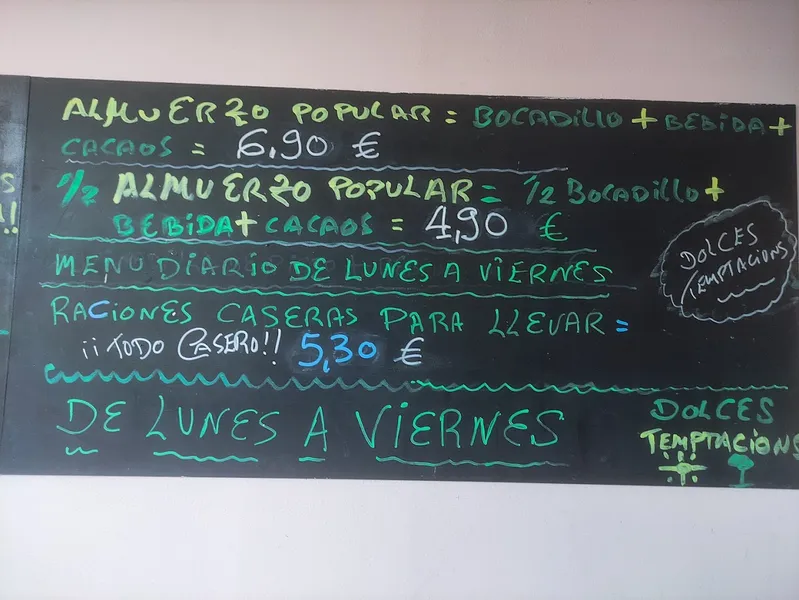 ALMUERZO POPULAR = BOCADILLO + BEBIDA +
CACAOS = 6,90 €
1/2 ALMUERZO POPULAR = 1/2 BOCADILLO +
BEBIDA + CACAOS = 4,90 €
MENU DIARIO DE LUNES A VIERNES
RACIONES CASERAS PARA LLEVAR =
¡¡TODO CASERO!! 5,30 €
DE LUNES A VIERNES
DOLCES
TEMPTACIONS
DOLCES
TEMPTACIONS
S
!!